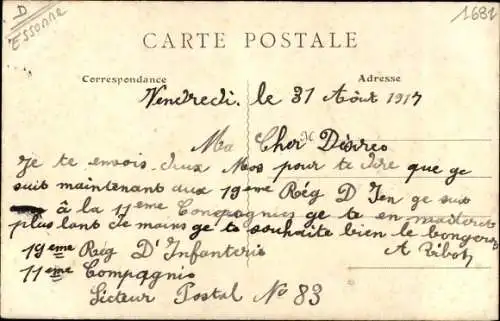 D
Essonne
1681
CARTE POSTALE
Correspondance
Adresse
Vendredi. le 31 Août 1917
Ma Cher Désrée
Je te envois deux Mos pour te dire que ge
suit maintenant aux 19eme Rég D Ien ge suis
à la 11eme Conpagnies ge te en
plus lont de mains ge te souhaite bien le bongers
19eme Reg D'Infanteris
A Ribot
11eme Compagnis
Secteur Postal No 83